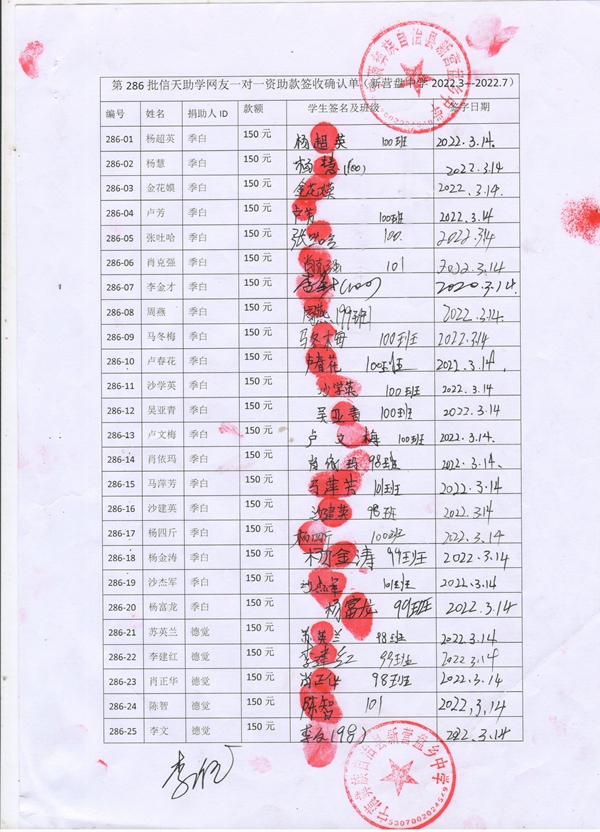 第 286 批信天助学网友一对一资助款签收确认单(新营盘中学 2022.3—2022.7)
编号 姓名 捐助人 ID 款额 学生签名及班级 签字日期
286-01 杨超英 季白 150 元 杨超英 100班 2022.3.14.
286-02 杨慧 季白 150 元 杨慧 (100) 2022.3.14
286-03 金花嫫 季白 150 元 金花嫫 2022.3.14
286-04 卢芳 季白 150 元 100班 2022.3.14
286-05 张吐哈 季白 150 元 张吐哈 100. 2022.3.14
286-06 肖克强 季白 150 元 肖克强 101 2022.3.14
286-07 李金才 季白 150 元 李金才(100) 2020.3.14.
286-08 周燕 季白 150 元 周燕 199班 2022.3.14
286-09 马冬梅 季白 150 元 马冬梅 100班 2022.3.14
286-10 卢春花 季白 150 元 卢春花 100班 2022.3.14
286-11 沙学英 季白 150 元 沙学英 100班 2022.3.14
286-12 吴亚青 季白 150 元 吴亚青 100班 2022.3.14
286-13 卢文梅 季白 150 元 卢文梅 100班 2022.3.14.
286-14 肖依玛 季白 150 元 肖依玛 98班 2022.3.14.
286-15 马萍芳 季白 150 元 马萍芳 101班 2022.3.14
286-16 沙建英 季白 150 元 沙建英 98班 2022.3.14
286-17 杨四斤 季白 150 元 杨四斤 100班 2022.3.14.
286-18 杨金涛 季白 150 元 杨金涛 99班 2022.3.14
286-19 沙杰军 季白 150 元 沙杰军 101班 2022.3.14.
286-20 杨富龙 季白 150 元 杨富龙 99班 2022.3.14
286-21 苏英兰 德觉 150 元 苏英兰 98班 2022.3.14
286-22 李建红 德觉 150 元 李建红 99班 2022.3.14
286-23 肖正华 德觉 150 元 肖正华 98班 2022.3.14
286-24 陈智 德觉 150 元 陈智 101 2022.3.14
286-25 李文 德觉 150 元 李文 (98) 2022.3.14
宁蒗彝族自治县新营盘乡中学
5307002024549